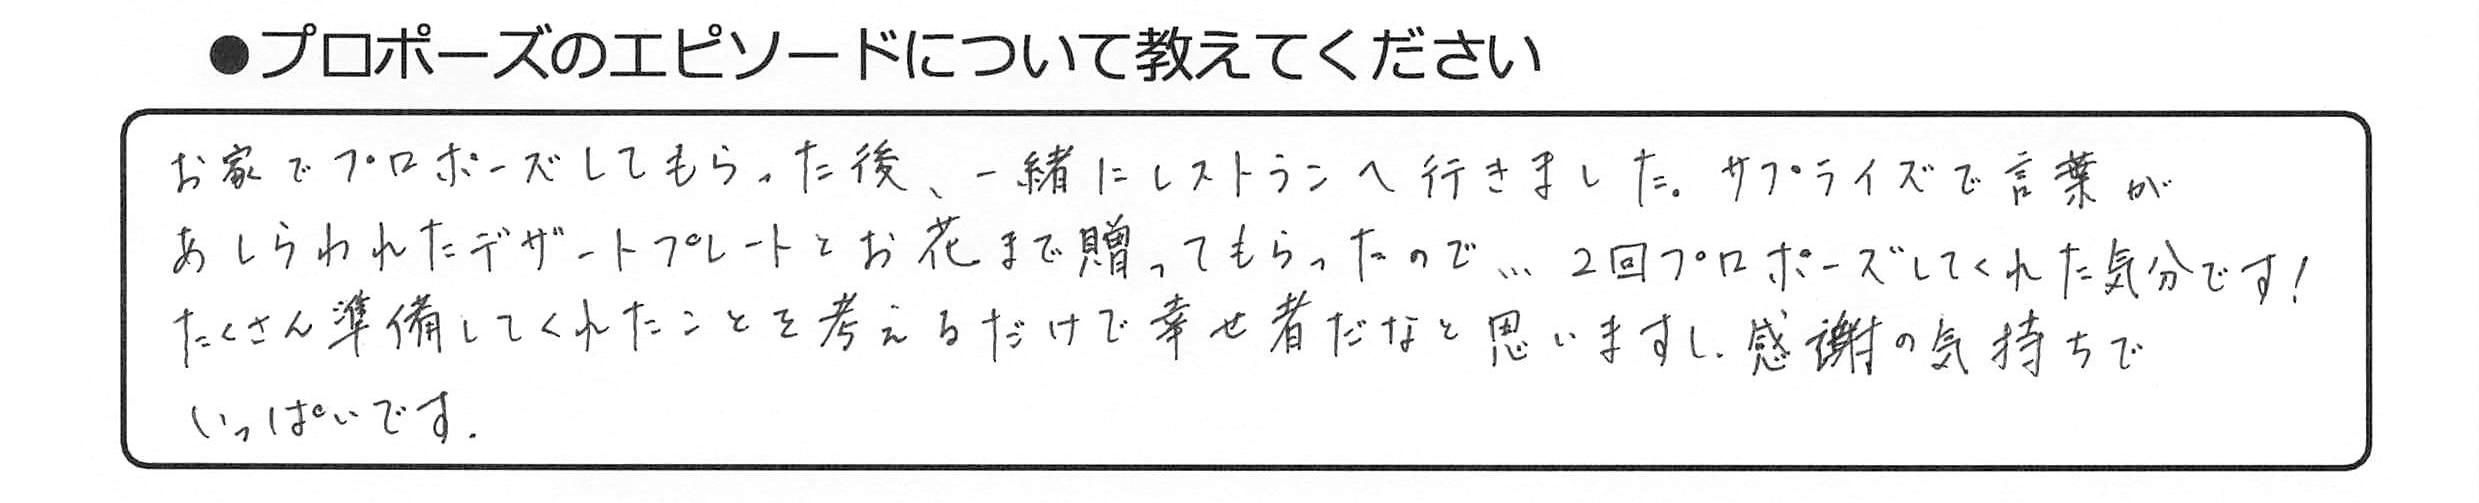 ●プロポーズのエピソードについて教えてください
お家でプロポーズしてもらった後、一緒にレストランへ行きました。サプライズで言葉が
あしらわれたデザートプレートとお花まで贈ってもらったので… 2回プロポーズしてくれた気分です!
たくさん準備してくれたことを考えるだけで幸せ者だなと思いますし、感謝の気持ちで
いっぱいです.